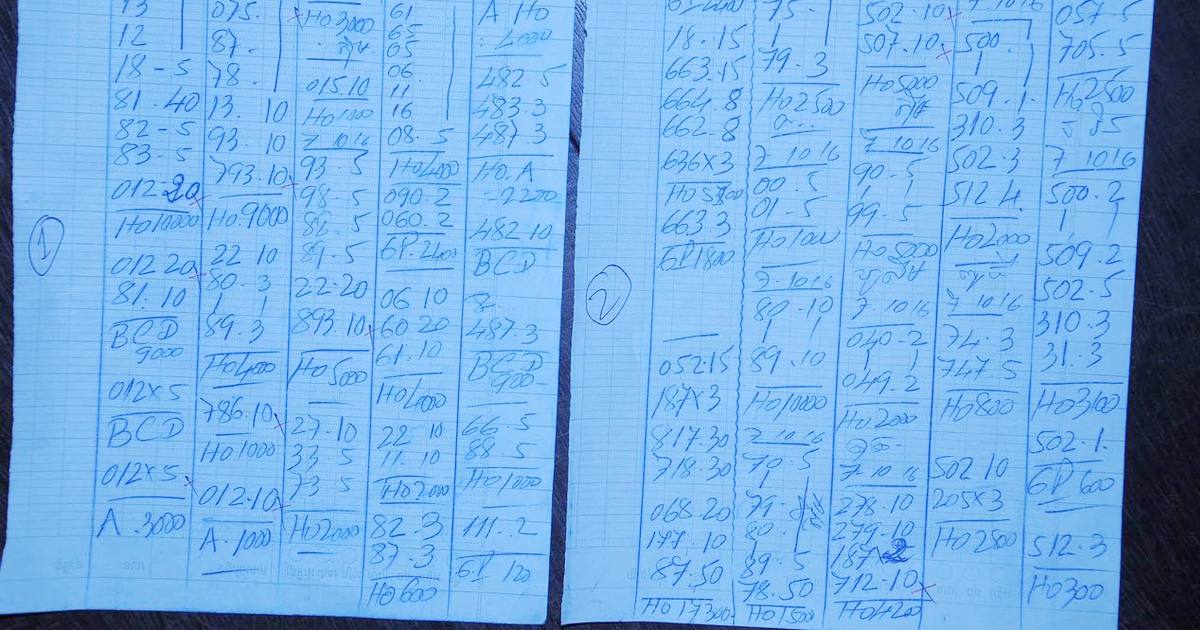 13
12
18-5
81.40
82-5
83-5
012.20
Ho10000
012 20
81.10
BCD
9000
012x5
BCD
012x5
A.3000
075.
87.
78.
13.10
93.10
793.10
Ho.9000
22 10
80.3
89.3
Ho4000
786.10
Ho1000
012.10
A.1000
Ho3000
015.10
Ho1000
7 10 16
93.5
98-5
88.5
89.5
22.20
893.10
Ho5000
27.10
33.5
73 5
Ho2000
61
65
05
06.
11
16
08.5
Ho4000
090.2
060.2
6P.2400
06 10
60 20
61.10
Ho4000
22 10
11.10
Ho2000
82.3
87.3
Ho600
A Ho
482 5
483.3
487.3
Ho.A
-2200
482 10
BCD
487.3
BCD
900-
66.5
88.5
Ho1000
111.2
6P 120
1
18.15
663.15
664.8
662.8
636x3
663 3
6P1800
052.15
187x3
817.30
718.30
068.20
177.10
87.50
Ho17300
75-
79.3
Ho2500
7 10 16
00.5
01-5
7.10 16
80-10
89.10
Ho10000
7 10 16
70.5
79.
80.
89.5
78.50
Ho1500
502.10
507.10
Ho8000
7 10 16
90-5
99-5
7.10 16
040-2
049.2
Ho2000
7 10 16
278.10
279.10
187x2
712-10
Ho4200
7 10 16
500.
509.1.
310.3
502.3
512 4.
Ho2000
7 10 16
74.3
747.5
Ho800
502 10
205x3
Ho2800
057.5
705.5
Ho2500
7 10 16
500.2
509.2
502.5
310.3
31.3
Ho3100
502.1.
6P 600
512.3
Ho300
2